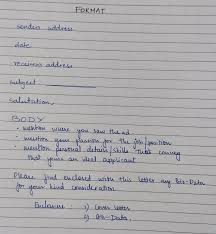 FORMAT
senders address
date
receivers address
subject:
salutation,
BODY
- mention where you saw the ad
- mention your passion for the job/position
- mention personal details/skills that convey
that you're an ideal applicant
Please find enclosed with this letter my Bio-Data
for your kind consideration
Enclosure: 1) Cover letter
2) Bio-Data.